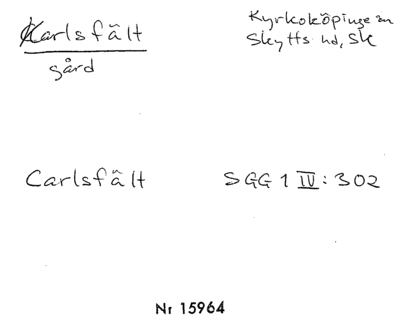 Karlsfält
gård
Kyrkoköpinge sn
Skytts hd, Sk
Carlsfält
SGG 1 IV: 302
Nr 15964